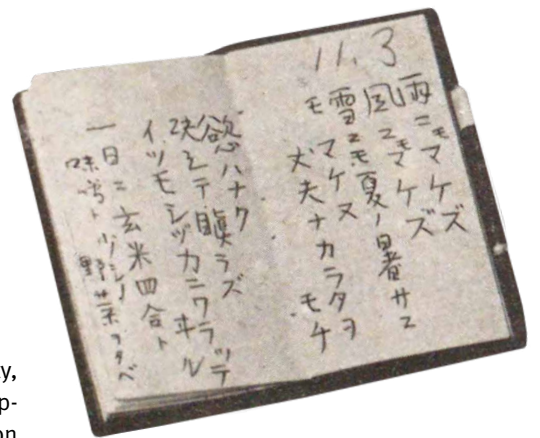 11.3
雨ニモマケズ
風ニモマケズ
雪ニモ夏ノ暑サニ
モ マケヌ
丈夫ナカラダヲ
モチ
慾ハナク
決シテ瞋ラズ
イツモシヅカニワラッテ
ヰル
一日ニ玄米四合ト
味噌ト少シノ野菜ヲタベ
y,
p-
on